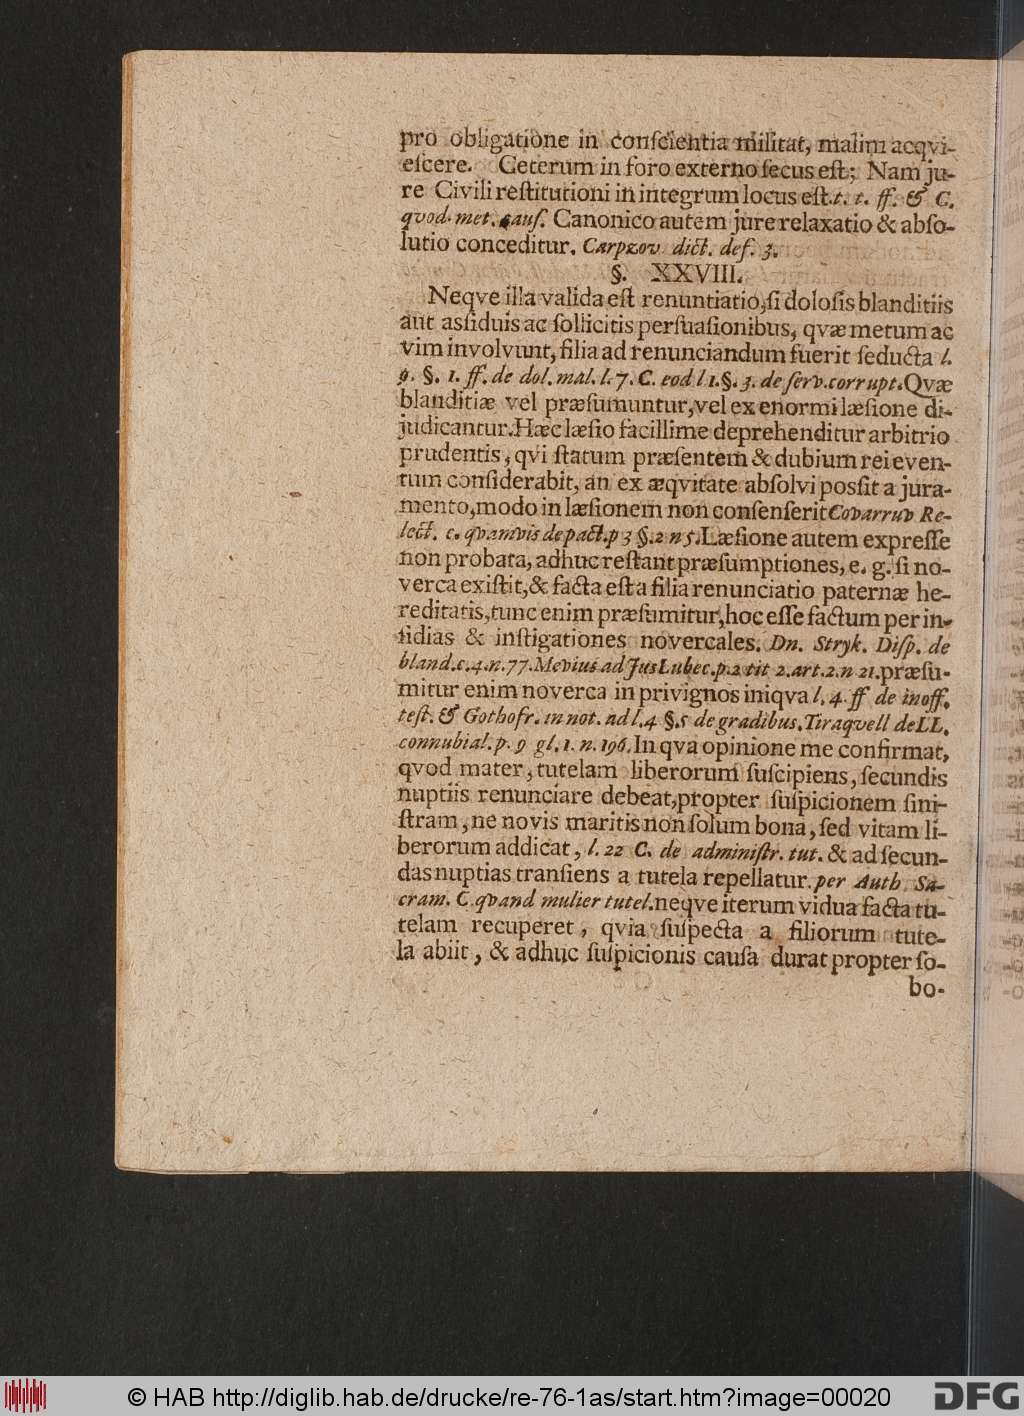 pro obligatione in conſcientia militat, malim acqvi-
eſcere. Ceterum in foro externo ſecus eſt; Nam ju-
re Civili reſtitutioni in integrum locus eſt. t. t. ff. & C.
qvod. met. cauſ. Canonico autem jure relaxatio & abſo-
lutio conceditur. Carpzov. dict. def. 3.
§. XXVIII.
Neqve illa valida eſt renuntiatio, ſi doloſis blanditiis
aut asſiduis ac ſollicitis perſuaſionibus, qvæ metum ac
vim involvunt, filia ad renunciandum fuerit ſeducta l.
9. §. 1. ff. de dol. mal. l. 7. C. eod l 1. §. 3. de ſerv. corrupt. Qvæ
blanditiæ vel præſumuntur, vel ex enormi læſione di-
judicantur. Hæc læſio facillime deprehenditur arbitrio
prudentis, qvi ſtatum præſentem & dubium rei even-
tum conſiderabit, an ex æqvitate abſolvi posſit a jura-
mento, modo in læſionem non conſenſerit Covarruv Re-
lect. c. qvamvis de pact. p 3 §. 2 n 5. Læſione autem expreſſe
non probata, adhuc reſtant præſumptiones, e. g. ſi no-
verca exiſtit, & facta eſt a filia renunciatio paternæ he-
reditatis, tunc enim præſumitur, hoc eſſe factum per in-
ſidias & inſtigationes novercales. Dn. Stryk. Diſp. de
bland. c. 4. n. 77. Mevius ad Jus Lubec. p. 2 tit 2. art. 2. n 21. præſu-
mitur enim noverca in privignos iniqva l. 4. ff de inoff.
teſt. & Gothofr. in not. ad l. 4 §. 5 de gradibus. Tiraqvell de LL.
connubial. p. 9 gl. 1. n. 196. In qva opinione me confirmat,
qvod mater, tutelam liberorum ſuſcipiens, ſecundis
nuptiis renunciare debeat, propter ſuſpicionem ſini-
ſtram, ne novis maritis non ſolum bona, ſed vitam li-
berorum addicat, l. 22 C. de adminiſtr. tut. & ad ſecun-
das nuptias tranſiens a tutela repellatur. per Auth. Sa-
cram. C. qvand mulier tutel. neqve iterum vidua facta tu-
telam recuperet, qvia ſuſpecta a filiorum tute-
la abiit, & adhuc ſuſpicionis cauſa durat propter ſo-
bo-
© HAB http://diglib.hab.de/drucke/re-76-1as/start.htm?image=00020
DFG